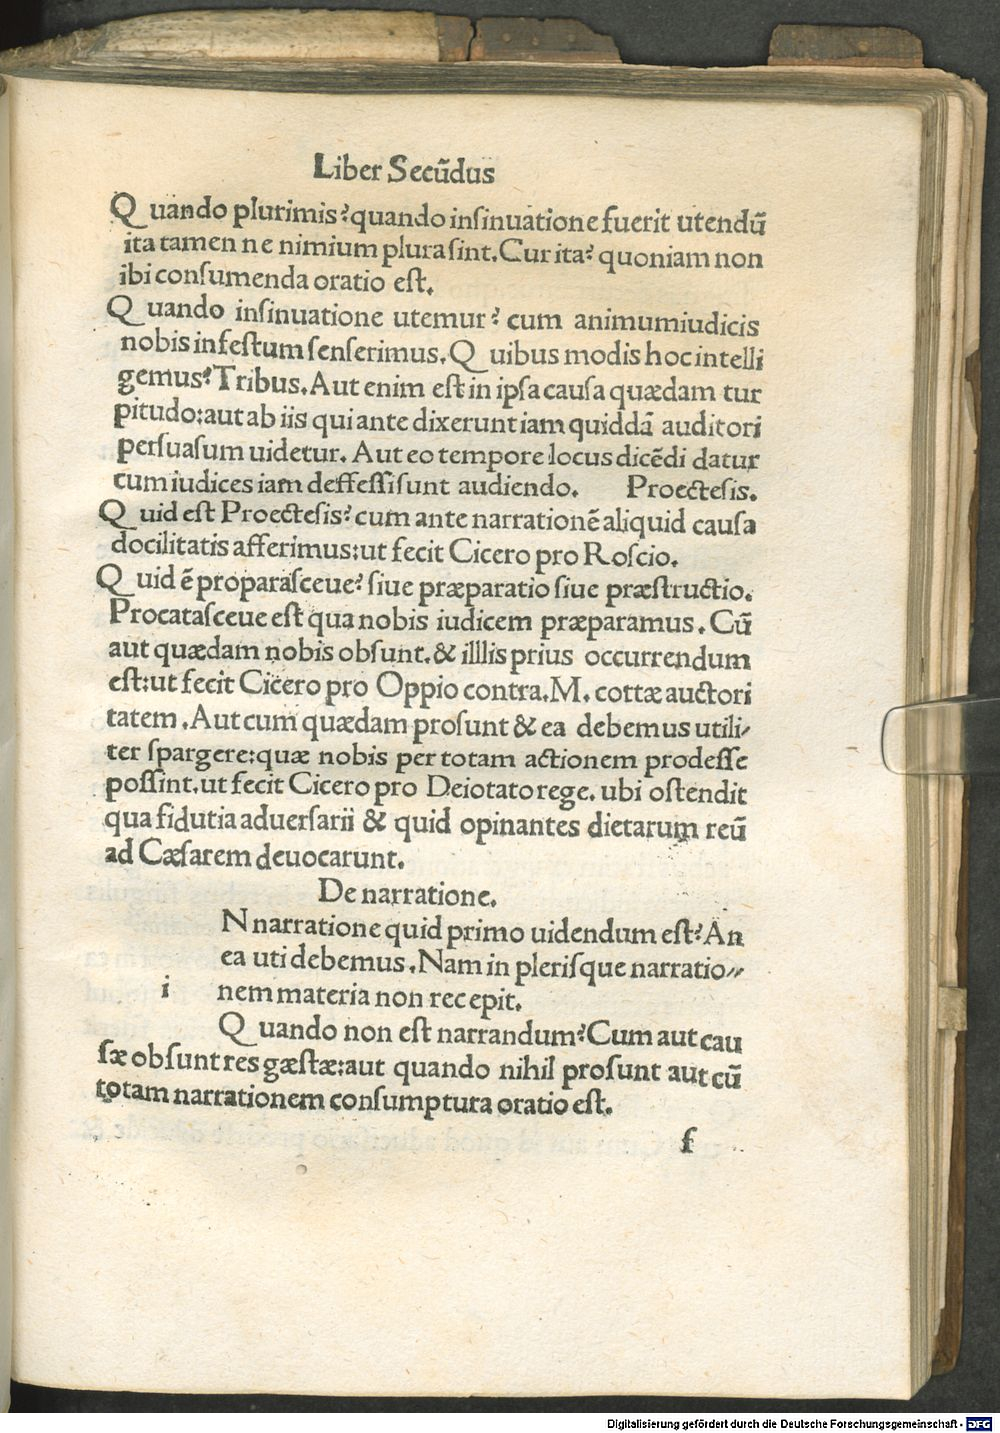 Liber Secũdus
Q uando plurimis?quando inſinuatione fuerit utendũ
ita tamen ne nimium plura ſint.Cur ita? quoniam non
ibi conſumenda oratio eſt.
Q uando inſinuatione utemur? cum animumiudicis
nobis infeſtum ſenſerimus.Q uibus modis hoc intelli
gemus?Tribus.Aut enim eſt in ipſa cauſa quædam tur
pitudo:aut ab iis qui ante dixerunt iam quiddã auditori
perſuaſum uidetur. Aut eo tempore locus dicẽdi datur
cum iudices iam deffeſſi ſunt audiendo. Proecteſis.
Q uid eſt Proecteſis? cum ante narrationẽ aliquid cauſa
docilitatis afferimus:ut fecit Cicero pro Roſcio.
Q uid ẽ proparaſceue? ſiue præparatio ſiue præſtructio.
Procataſceue eſt qua nobis iudicem præparamus. Cũ
aut quædam nobis obſunt.& illlis prius occurrendum
eſt:ut fecit Cicero pro Oppio contra.M. cottæ auctori
tatem .Aut cum quædam proſunt & ea debemus utili⸗
ter ſpargere:quæ nobis per totam actionem prodeſſe
poſſint.ut fecit Cicero pro Deiotato rege. ubi oſtendit
qua fidutia aduerſarii & quid opinantes dietarum reũ
ad Cæſarem deuocarunt.
De narratione.
N narratione quid primo uidendum eſt?An
ea uti debemus.Nam in pleriſque narratio⸗
i nem materia non recepit.
Q uando non eſt narrandum?Cum aut cau
ſæ obſunt res gæſtæ:aut quando nihil proſunt aut cũ
totam narrationem conſumptura oratio eſt.
f
Digitalisierung gefördert durch die Deutsche Forschungsgemeinschaft - DFG